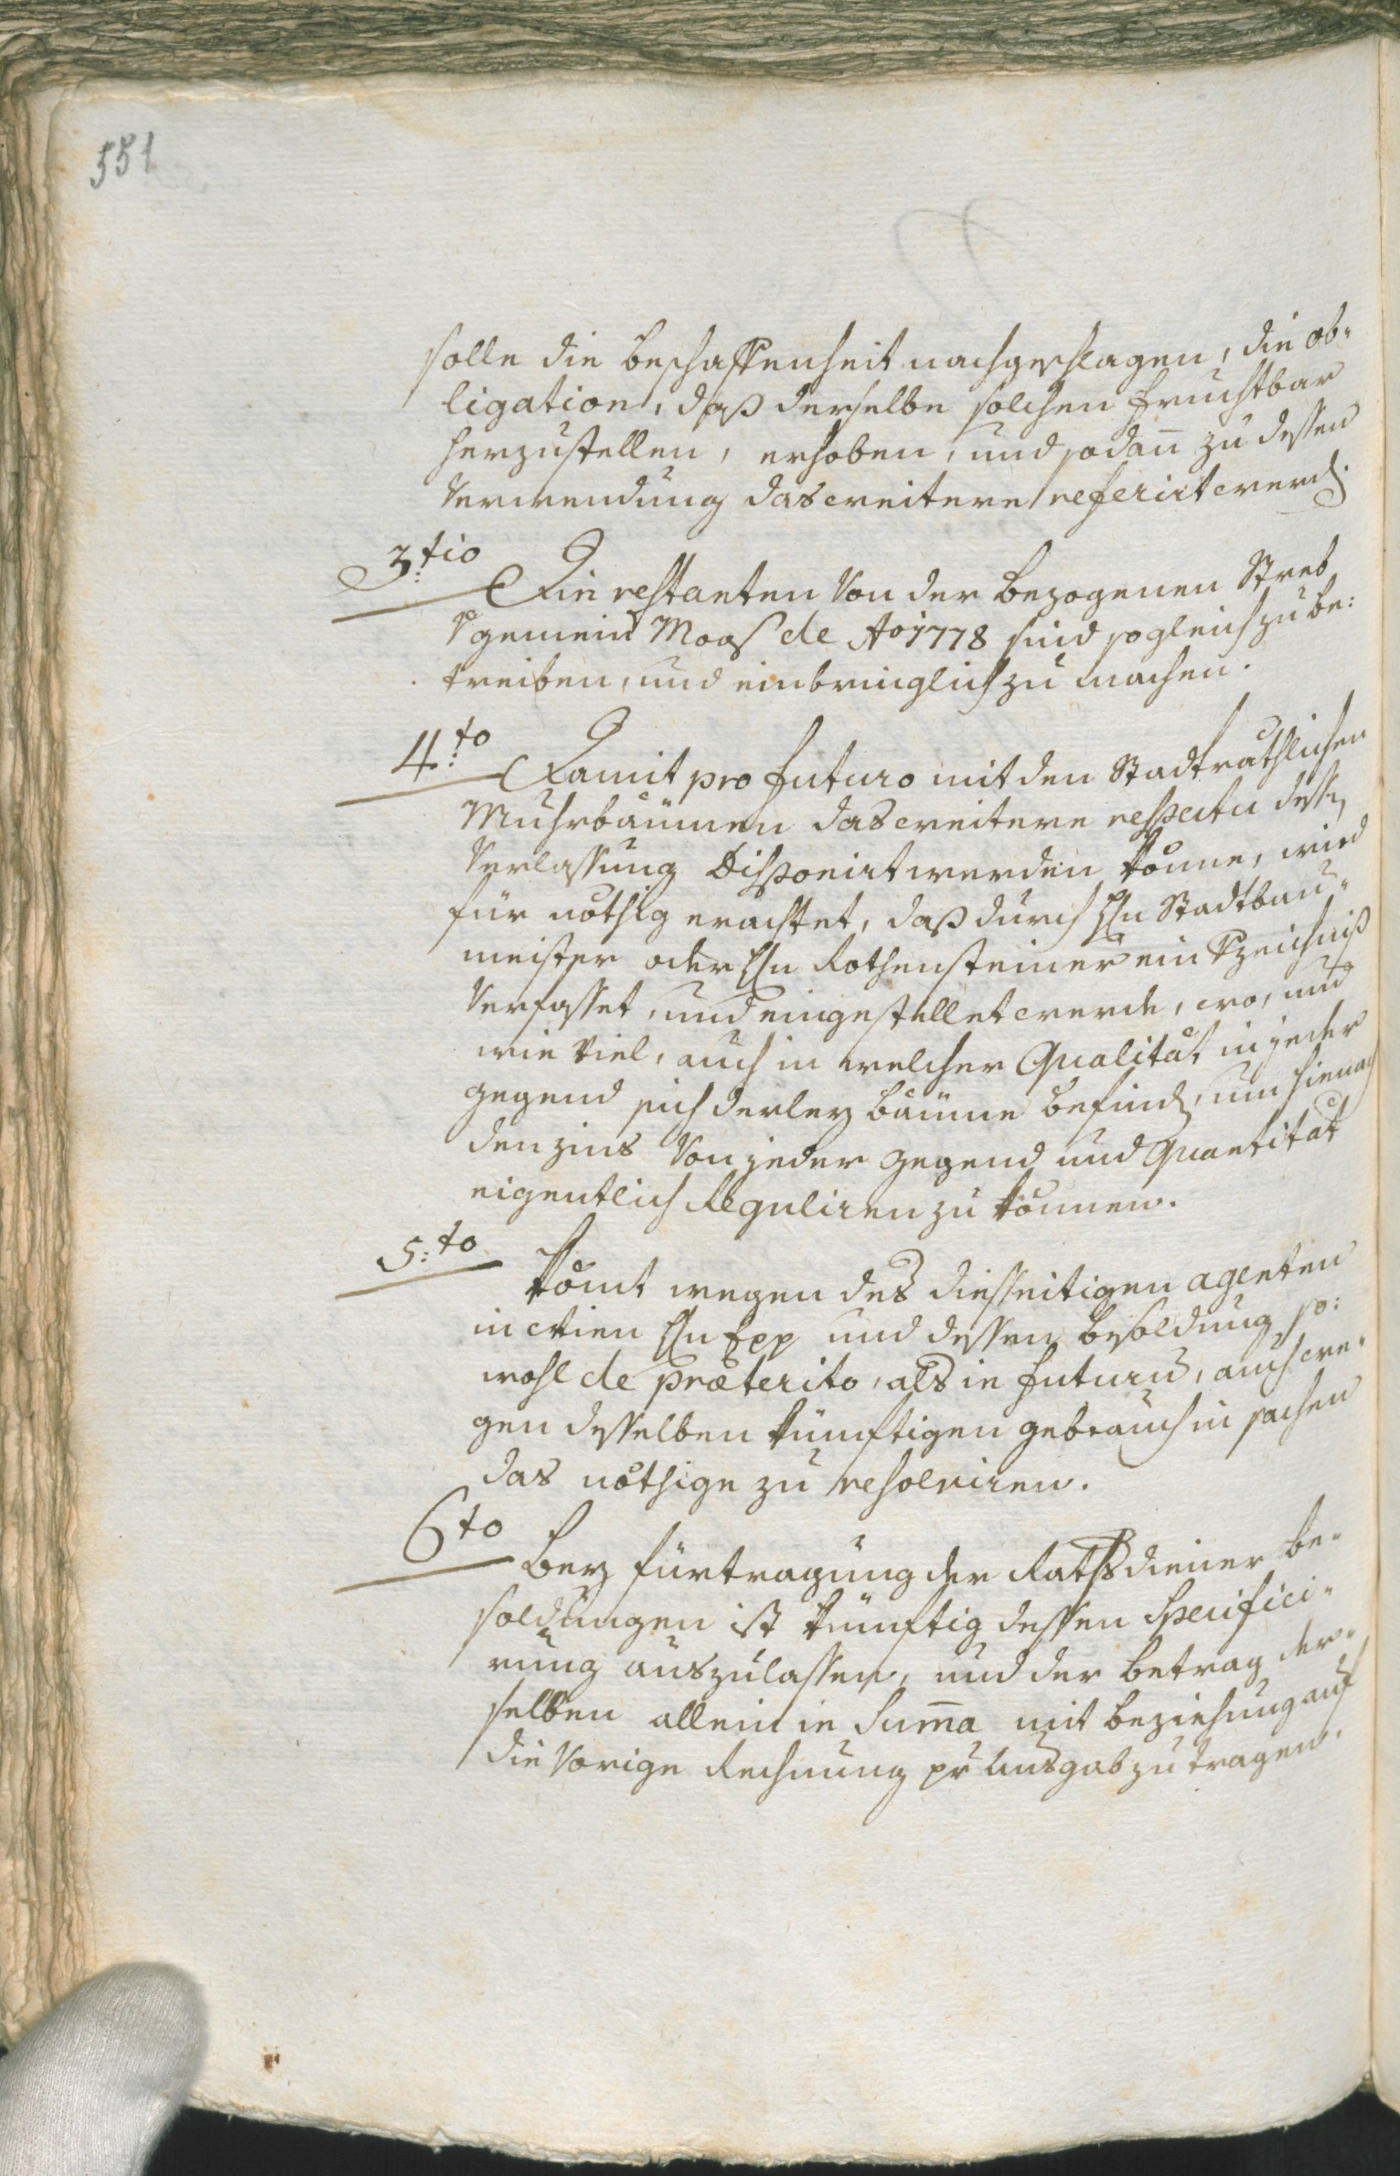 551
solle die beschaffenheit nachgeschlagen, die ob-
ligation, daß derselbe solchen fruchtbar
herzustellen, erhoben, und sodañ zu dessen
Verwendung das weitere referirt werd.
3:tio Die restanten Von der bezogenen Streb
gemein Moos de Ao 1778 sind sogleich zu be:
treiben, und einbringlich zu machen.
4:to Damit pro futuro mit den Stadträthlichen
Muhrbäumen das weitere respectu dessen
Verlassung Disponirt werden könne, wird
für nöthig erachtet, daß durch Hn Stadtbau-
meister oder Hn Rothensteiner ein Vzeichniß
Verfasset, und eingestellet werde, wo, und
wie viel, auch in welcher Qualität in jeder
gegend sich derley bäume befind, um hienach
den zins Von jeder gegend und Quantität
eigentlich Reguliren zu können.
5:to Komt wegen des diesseitigen agenten
in Wien Hn Epp und dessen besoldung so:
wohl de præterito, als in futurum, auch we-
gen desselben künftigen gebrauch in sachen
das nöthige zu resolviren.
6to Bey fürtragung der Rathsdiener be-
soldungen ist künftig dessen Specifici-
rung auszulassen, und der betrag der-
selben allein in Sum̃a mit beziehung auf
die Vorige Rechnung pr Ausgab zu tragen.